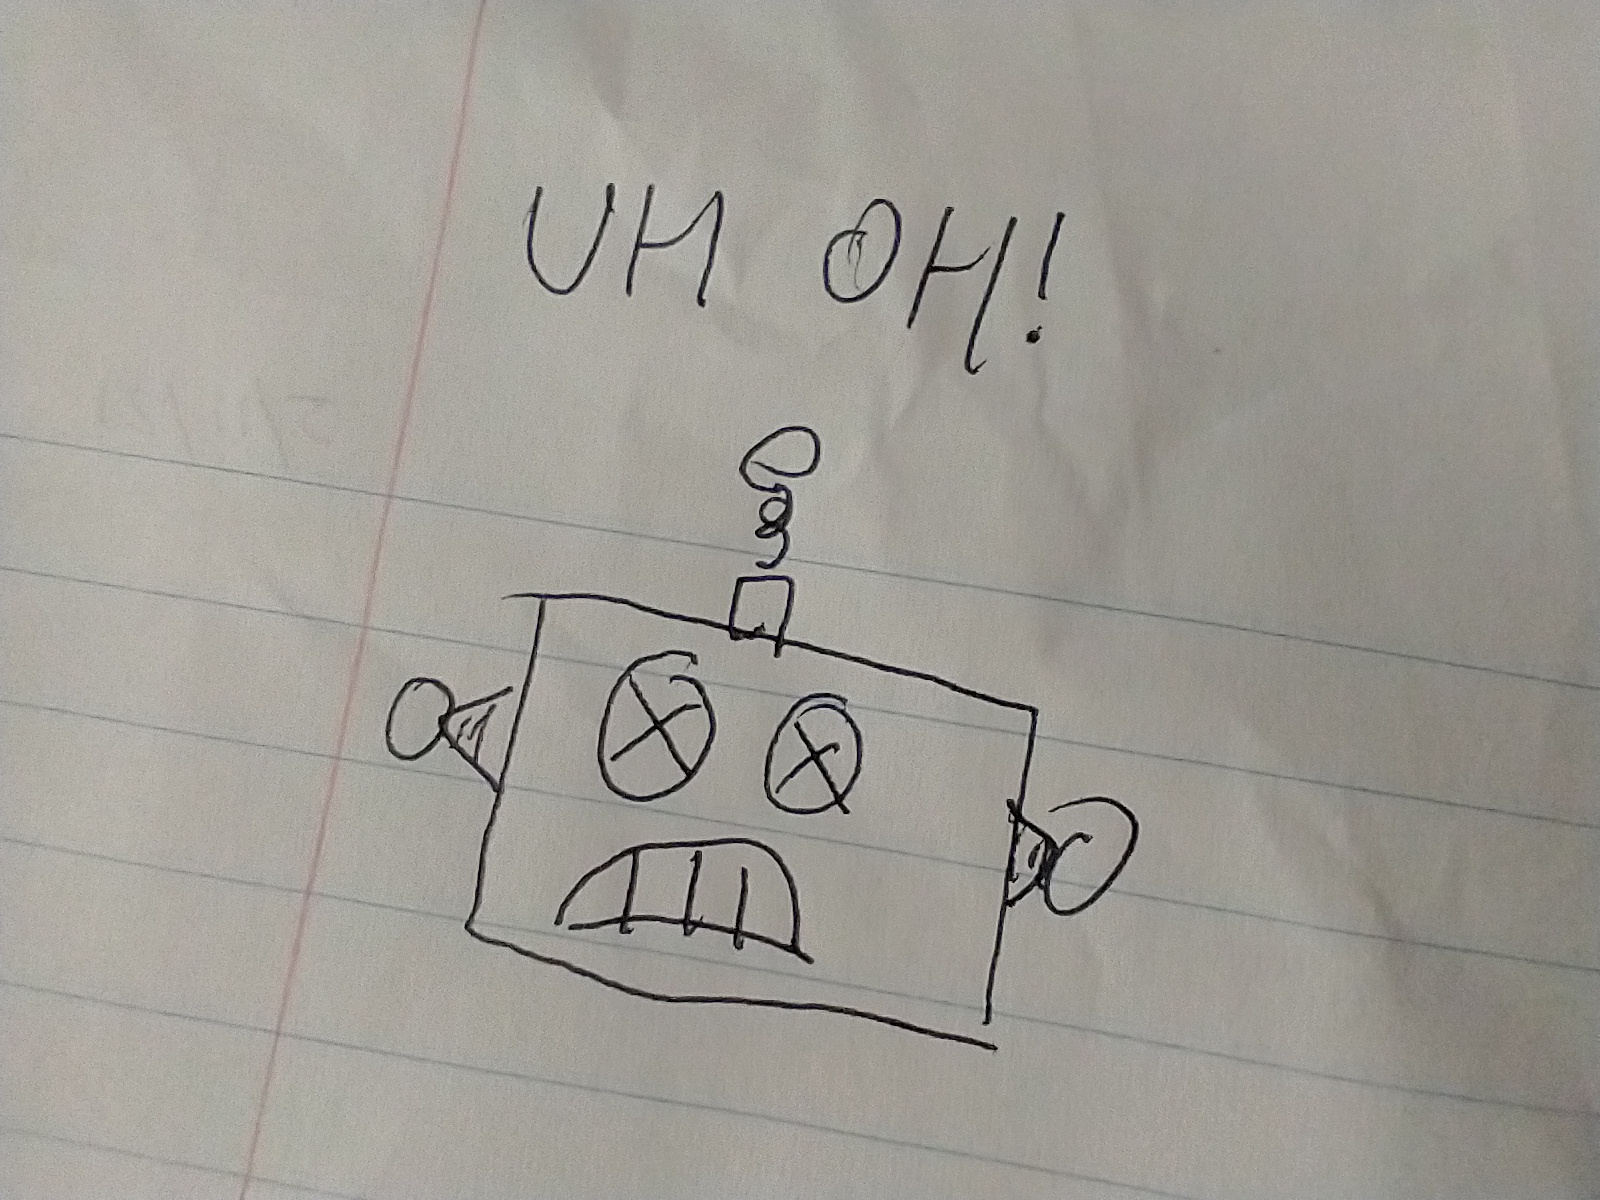 UH OH!